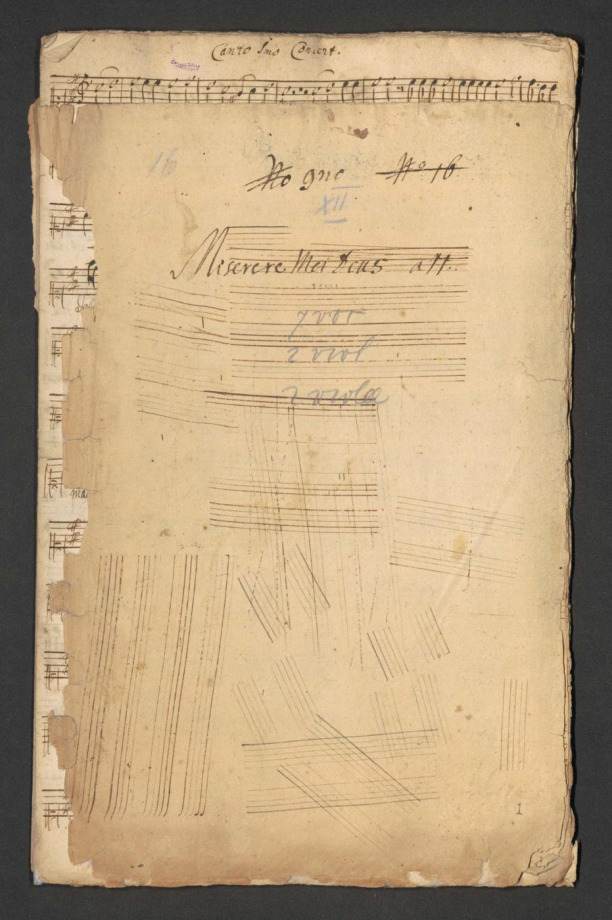 Canto Imo Concert.
16
No 9no No 16
XII
Miserere Mei Deus a 11.
7 voc
2 viol
2
1